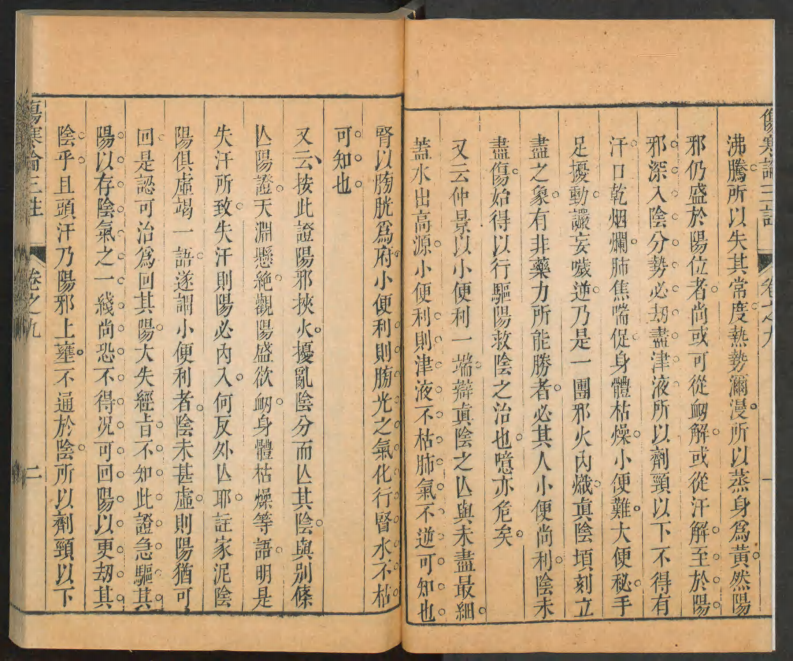 傷寒論三註 卷之九 一
沸騰所以失其常度熱勢瀰漫所以蒸身爲黃然陽
邪仍盛於陽位者尚或可從衂解或從汗解至於陽
邪深入陰分勢必刼盡津液所以劑頸以下不得有
汗口乾烟爛肺焦喘促身體枯燥小便難大便秘手
足擾動讝妄噦逆乃是一團邪火內熾眞陰頃刻立
盡之象有非藥力所能勝者必其人小便尚利陰未
盡傷始得以行驅陽救陰之治也噫亦危矣
又云仲景以小便利一端辯眞陰之亾與未盡最細
蓋水出高源小便利則津液不枯肺氣不逆可知也
腎以膀胱爲府小便利則膀光之氣化行腎水不枯
可知也
又云按此證陽邪挾火擾亂陰分而亾其陰與別條
亾陽證天淵懸絶觀陽盛欲衂身體枯燥等語明是
失汗所致失汗則陽必內入何反外亾耶註家泥陰
陽俱虛竭一語遂謂小便利者陰未甚虛則陽猶可
回是認可治爲回其陽大失經旨不知此證急驅其
陽以存陰氣之一綫尚恐不得況可回陽以更刼其
陰乎且頭汗乃陽邪上壅不通於陰所以劑頸以下
傷寒論三註 卷之九 二